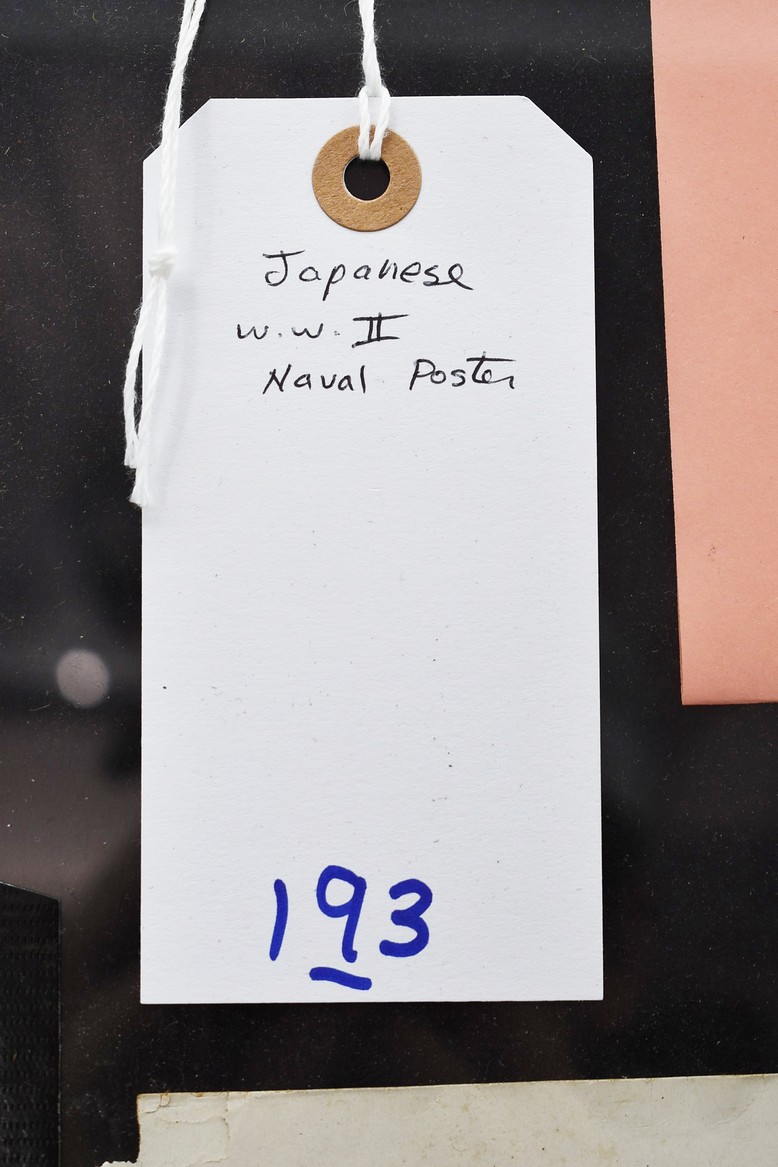 Japanese
W.W. II
Naval Poster
193